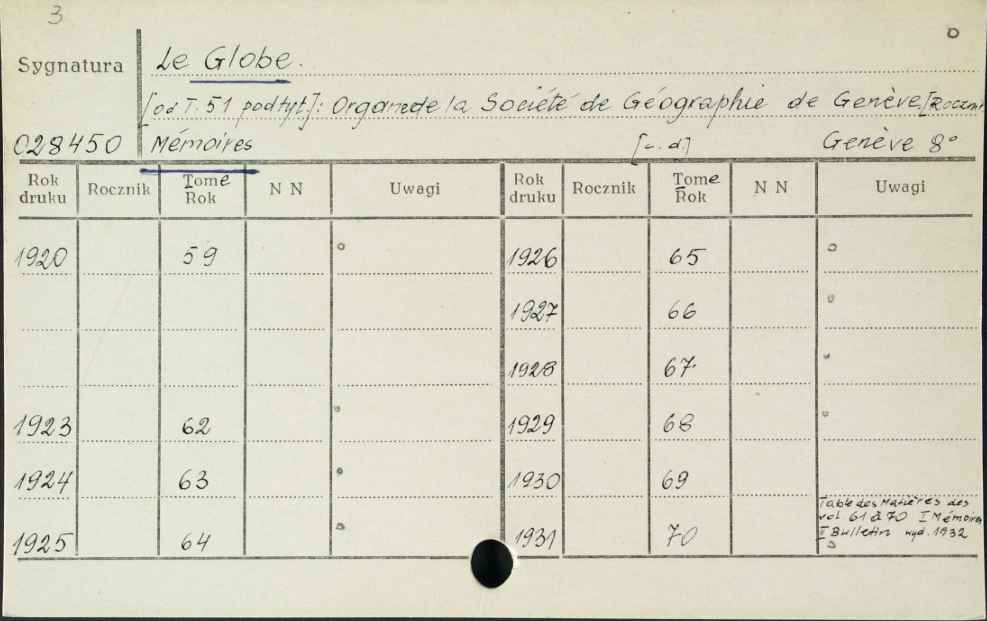 3
Sygnatura Le Globe.
[od T. 51 podtyt]: Organe de la Société de Géographie de Genève. [Roczni
028450 Mémoires [c.d.] Genève 8°
Rok druku Rocznik Tome Rok N N Uwagi Rok druku Rocznik Tome Rok N N Uwagi
1920 59 1926 65
1927 66
1928 67
1923 62 1929 68
1924 63 1930 69
1925 64 1931 70 Table des Matières des
vol 61 à 70 I Mémoires
II Bulletin wyd. 1932